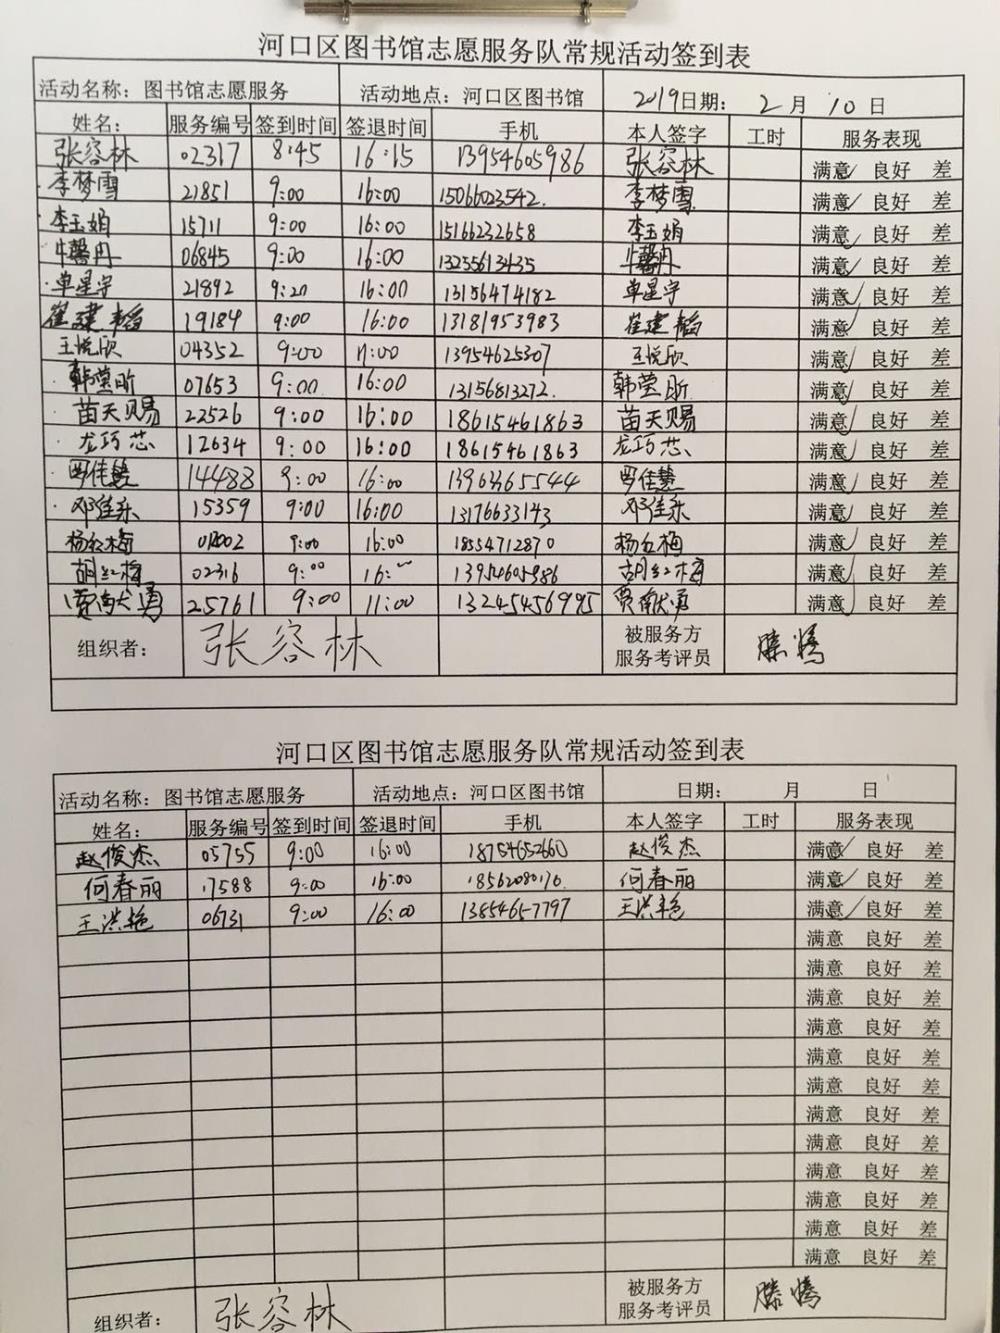 河口区图书馆志愿服务队常规活动签到表
活动名称：图书馆志愿服务 活动地点：河口区图书馆 2019日期： 2 月 10 日
姓名： 服务编号 签到时间 签退时间 手机 本人签字 工时 服务表现
张容林 02317 8:45 16:15 13954605986 张容林 满意✓ 良好 差
李梦雪 21851 9:00 16:00 15066023542. 李梦雪 满意✓ 良好 差
李玉娟 15711 9:00 16:00 15166232658 李玉娟 满意✓ 良好 差
牛馨冉 06845 9:00 16:00 13255613435 牛馨冉 满意✓ 良好 差
单星宇 21892 9:20 16:00 13156474182 单星宇 满意✓ 良好 差
崔建韬 19184 9:00 16:00 13181953983 崔建韬 满意✓ 良好 差
王悦欣 04352 9:00 11:00 13954625307 王悦欣 满意✓ 良好 差
韩莹昕 07653 9:00 16:00 13156813272. 韩莹昕 满意✓ 良好 差
苗天赐 22526 9:00 16:00 18615461863 苗天赐 满意✓ 良好 差
龙巧芯 12634 9:00 16:00 18615461863 龙巧芯 满意✓ 良好 差
罗佳慧 14488 9:00 16:00 13963365544 罗佳慧 满意✓ 良好 差
邓佳乐 15359 9:00 16:00 13176633143 邓佳乐 满意✓ 良好 差
杨红梅 9:00 16:00 18554712870 杨红梅 满意✓ 良好 差
胡红梅 02316 9:00 16:00 13954605986 胡红梅 满意✓ 良好 差
25761 9:00 11:00 满意✓ 良好 差
组织者： 张容林 被服务方 服务考评员 滕腾
河口区图书馆志愿服务队常规活动签到表
活动名称：图书馆志愿服务 活动地点：河口区图书馆 日期： 月 日
姓名： 服务编号 签到时间 签退时间 手机 本人签字 工时 服务表现
赵俊杰 05755 9:00 16:00 18754652660 赵俊杰 满意✓ 良好 差
何春丽 17588 9:00 16:00 18562080170. 何春丽 满意✓ 良好 差
王洪艳 06731 9:00 16:00 13854657797 王洪艳 满意✓ 良好 差
满意 良好 差
满意 良好 差
满意 良好 差
满意 良好 差
满意 良好 差
满意 良好 差
满意 良好 差
满意 良好 差
满意 良好 差
满意 良好 差
满意 良好 差
满意 良好 差
组织者： 张容林 被服务方 服务考评员 滕腾